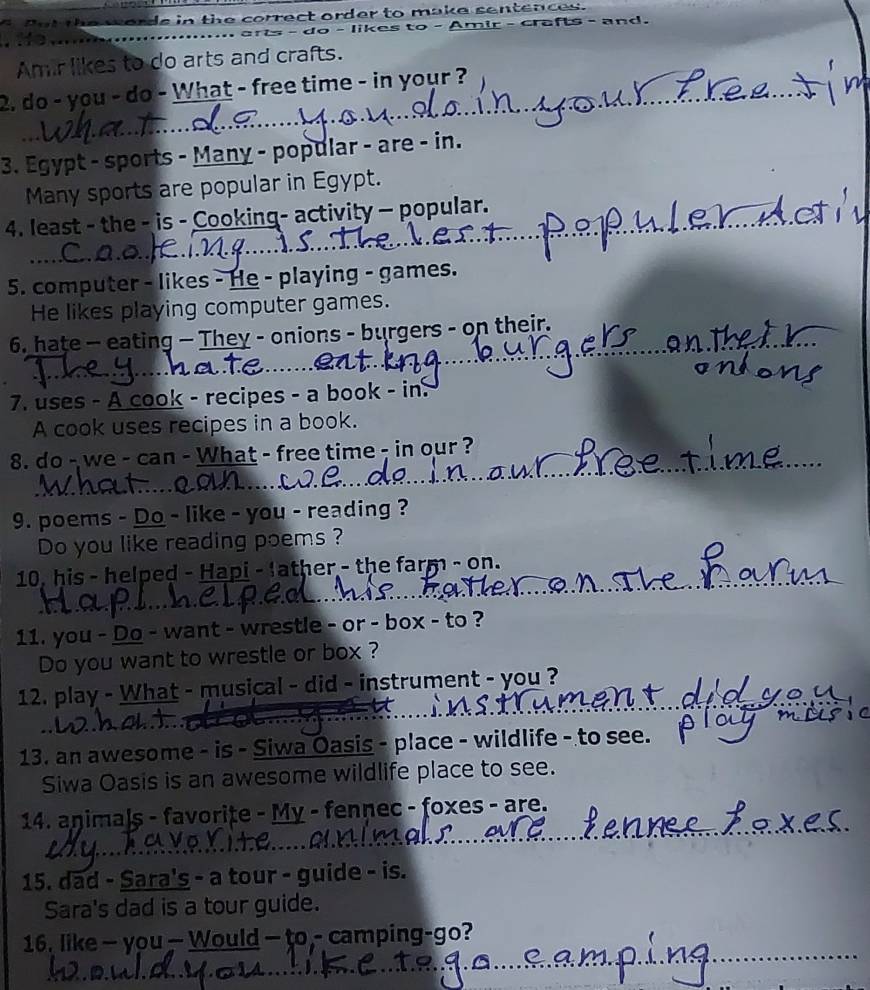 Put the words in the correct order to make sentences.
arts - do - likes to - Amir - crafts - and.
Amir likes to do arts and crafts.
2. do - you - do - What - free time - in your ?
what do you do in your free tim
3. Egypt - sports - Many - popular - are - in.
Many sports are popular in Egypt.
4. least - the - is - Cooking- activity - popular.
Cooking is the lest populer Activ
5. computer - likes - He - playing - games.
He likes playing computer games.
6. hate - eating - They - onions - burgers - on their.
They hate eating burgers on their
onions
7. uses - A cook - recipes - a book - in.
A cook uses recipes in a book.
8. do - we - can - What - free time - in our ?
What can we do in our free time
9. poems - Do - like - you - reading ?
Do you like reading poems ?
10. his - helped - Hapi - father - the farm - on.
Hapi helped his father on the farm
11. you - Do - want - wrestle - or - box - to ?
Do you want to wrestle or box ?
12. play - What - musical - did - instrument - you ?
what instrument did you
play music
13. an awesome - is - Siwa Oasis - place - wildlife - to see.
Siwa Oasis is an awesome wildlife place to see.
14. animals - favorite - My - fennec - foxes - are.
My favorite animals are fennec foxes.
15. dad - Sara's - a tour - guide - is.
Sara's dad is a tour guide.
16. like - you - Would - to - camping-go?
would you like to go camping